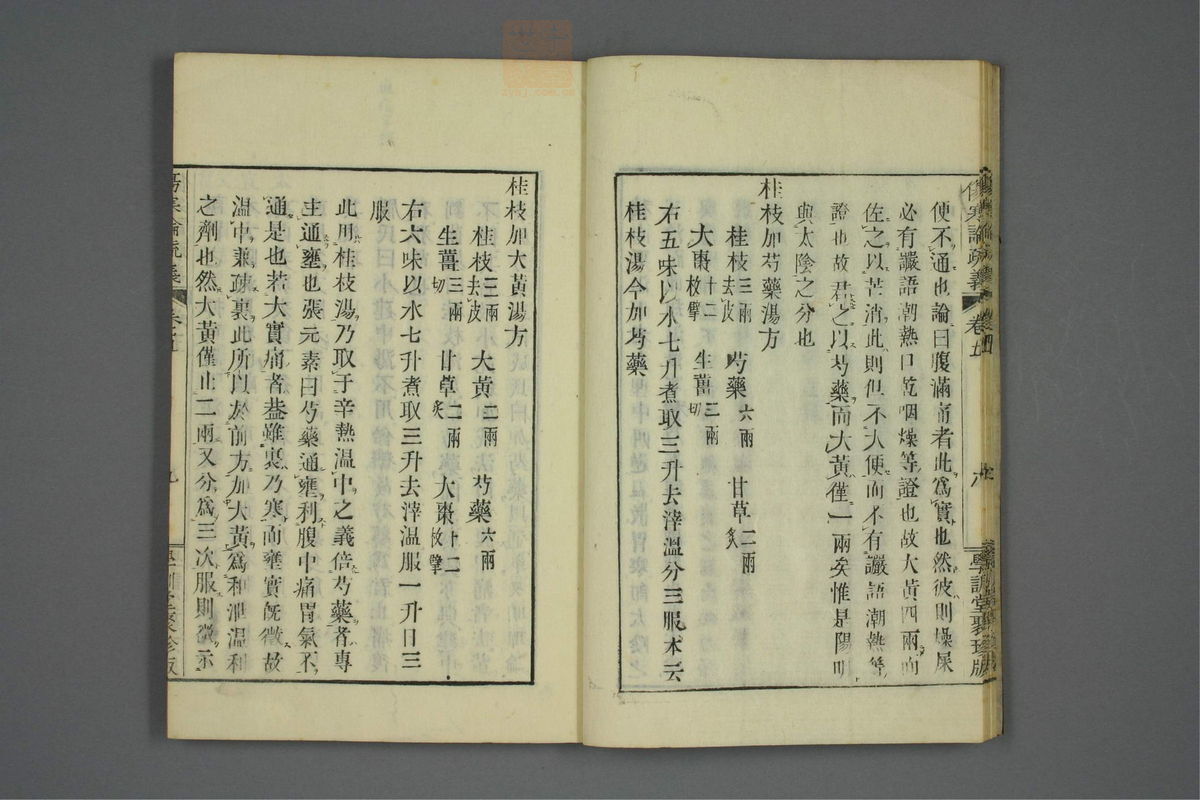 便不通也論曰腹滿痛者此爲實也然彼則燥屎
必有讝語潮熱口乾咽燥等證也故大黃四兩而
佐之以芒消此則但不大便而不有讝語潮熱等
證也故君之以芍藥而大黃僅一兩矣惟是陽明
與太陰之分也
桂枝加芍藥湯方
桂枝三兩去皮 芍藥六兩 甘草二兩炙
大棗十二枚擘 生薑三兩切
右五味以水七升煮取三升去滓溫分三服本云
桂枝湯今加芍藥
傷寒論疏義 卷五 六 學訓堂聚珍版
桂枝加大黃湯方
桂枝三兩去皮 大黃二兩 芍藥六兩
生薑三兩切 甘草二兩炙 大棗十二枚擘
右六味以水七升煮取三升去滓溫服一升日三
服
此用桂枝湯乃取于辛熱溫中之義倍芍藥者專
主通壅也張元素曰芍藥通壅利腹中痛胃氣不
通是也若大實痛者葢雖裏乃寒而壅實旣微故
溫中兼疎裏此所以於前方加大黃爲和泄溫利
之劑也然大黃僅止二兩又分爲三次服則微示